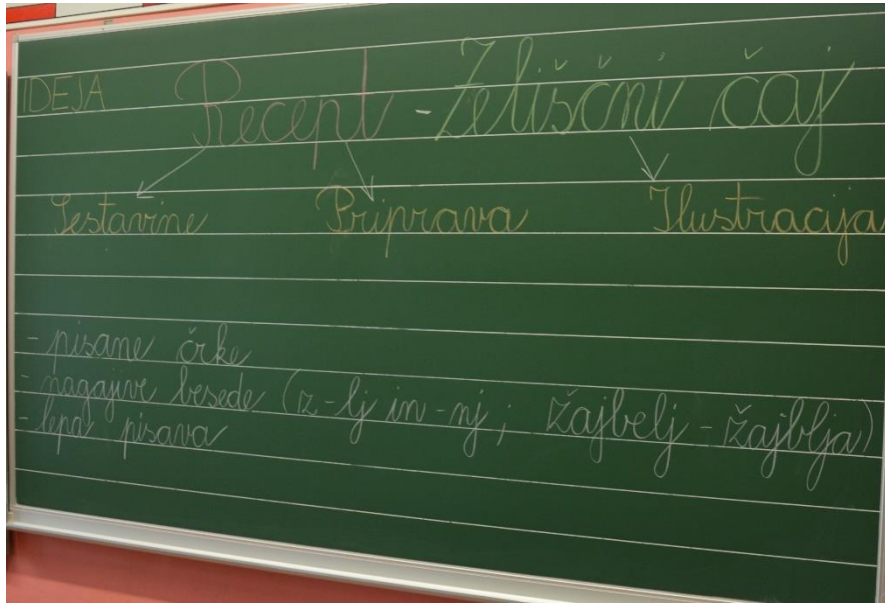 IDEJA Recept - Zeliščni čaj
Sestavine Priprava Ilustracija
- pisane črke
- nagajive besede (iz -lj in -nj; žajbelj - žajblja)
- lepa pisava